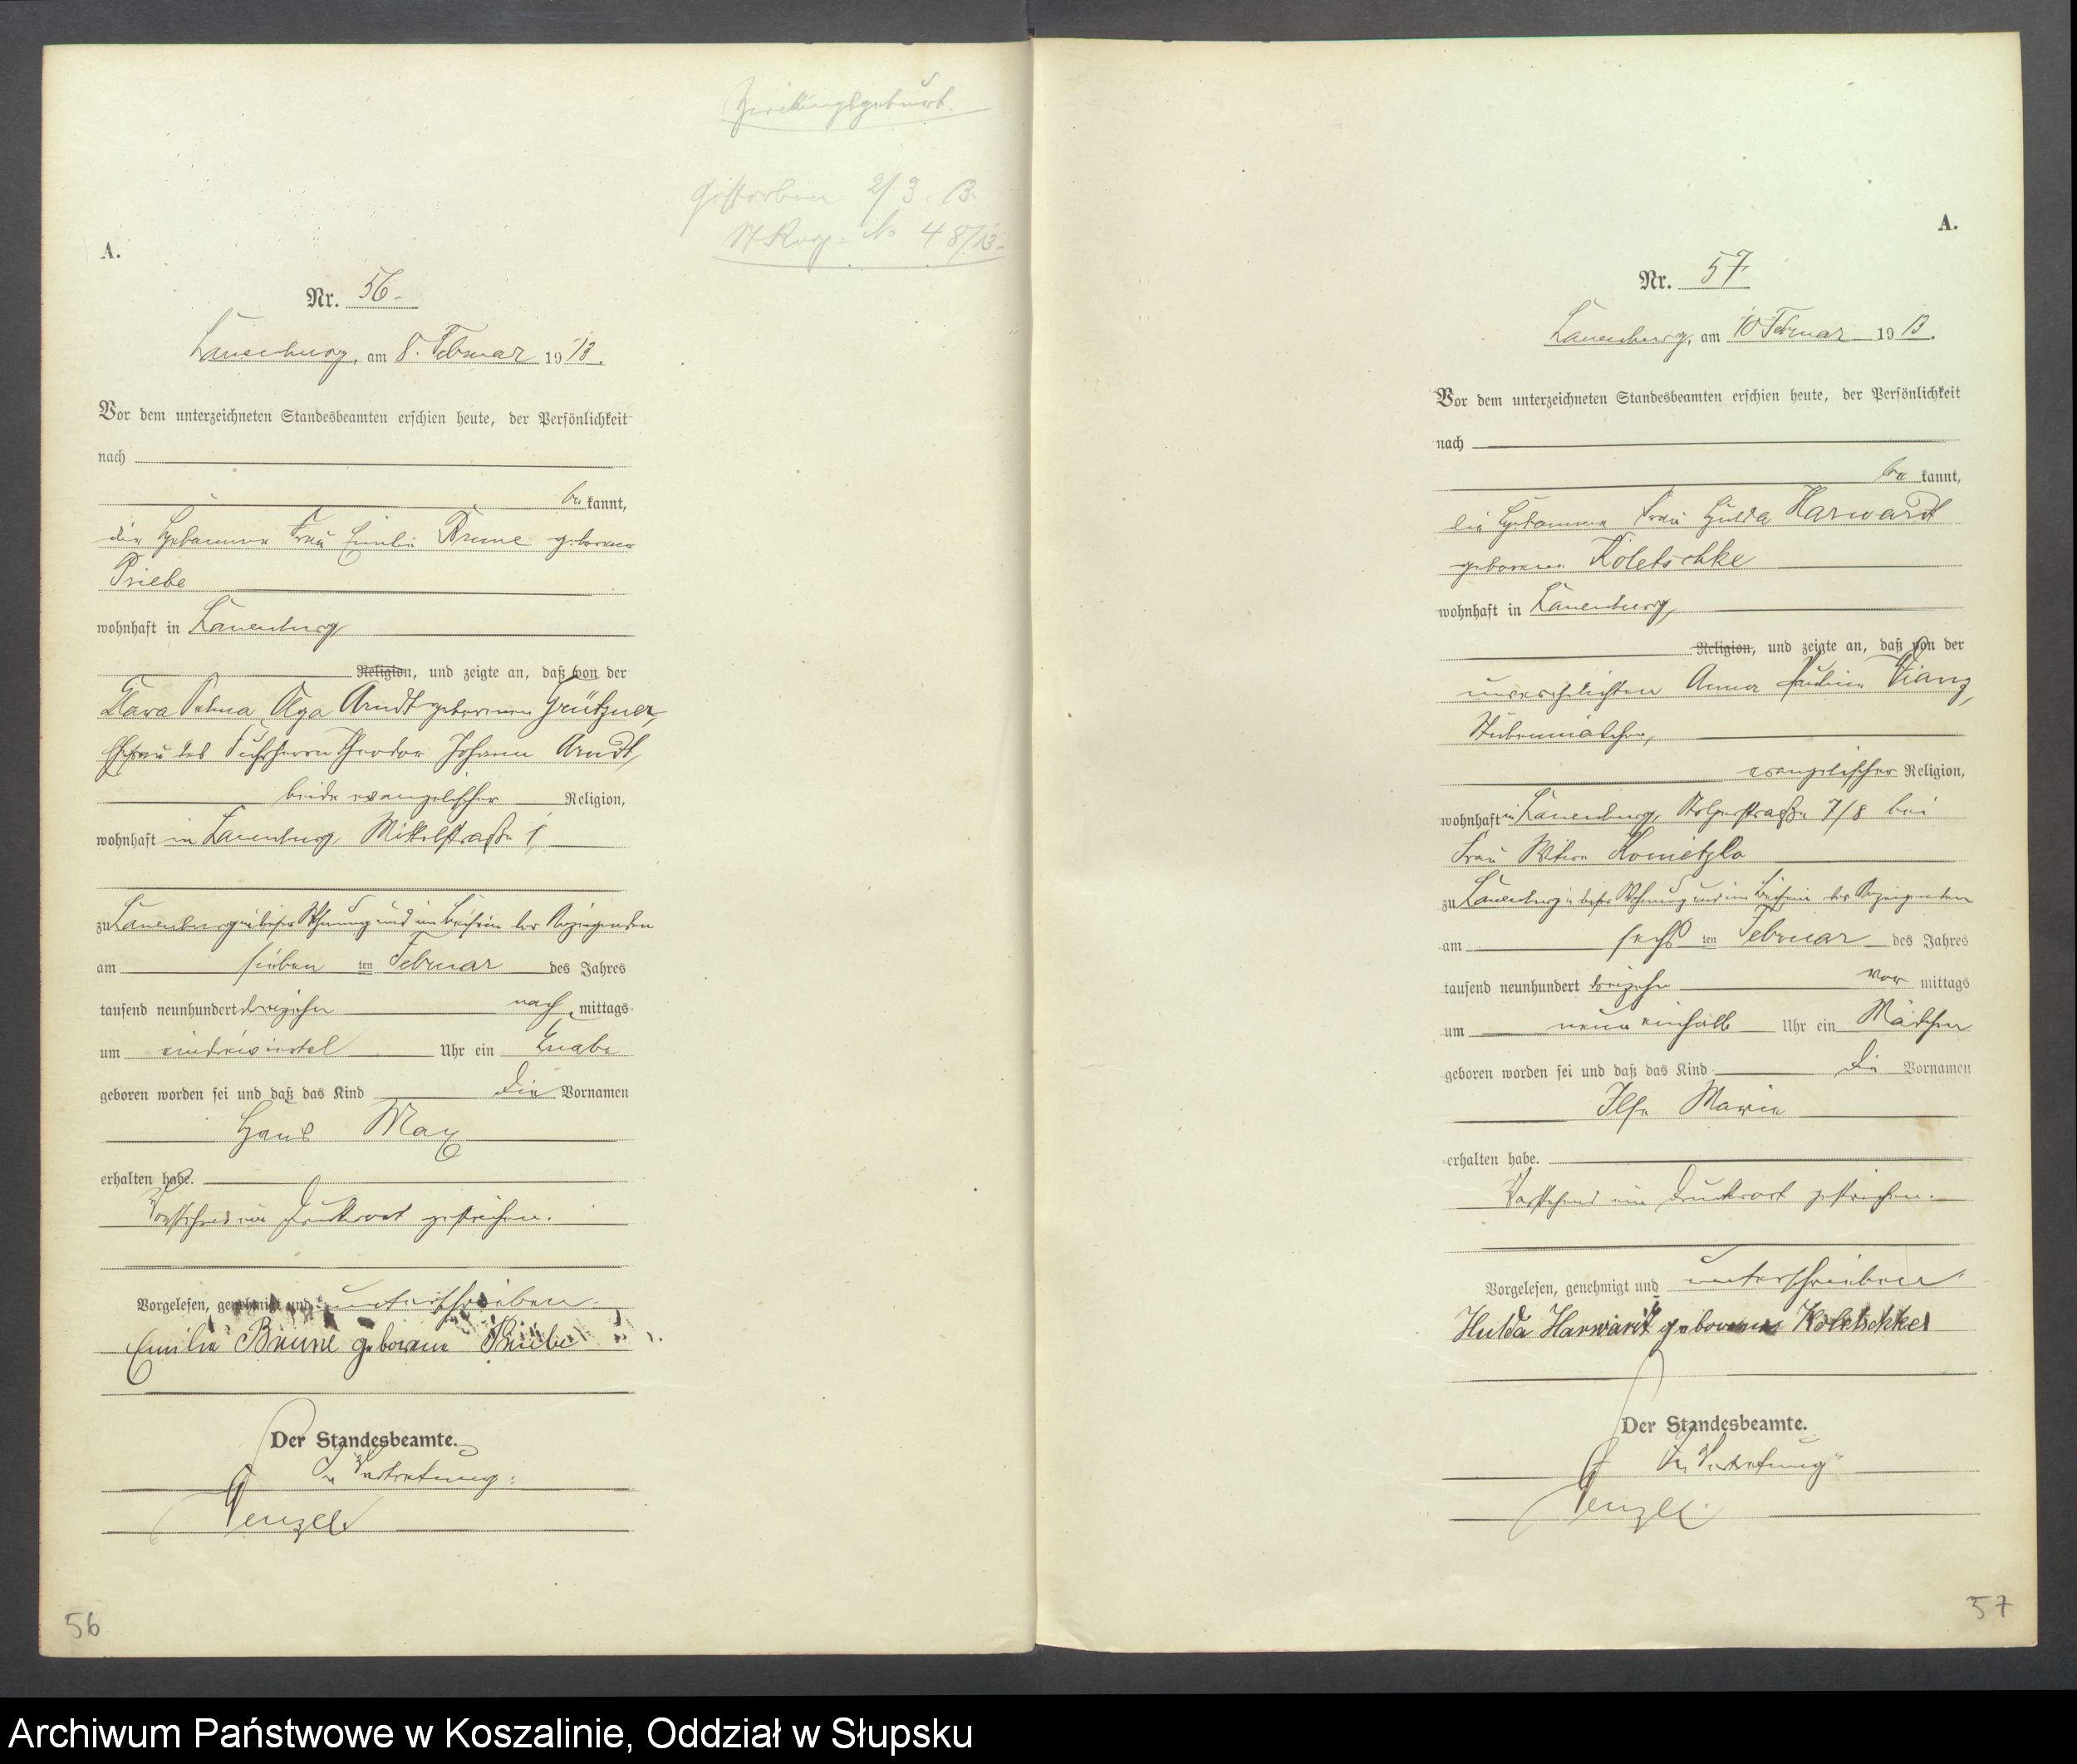 Zwillingsgeburt.
Gestorben 2/3. 13.
St. Reg. No 48/13.
A.
Nr. 56.
Lauenburg, am 8. Februar 1913.
Vor dem unterzeichneten Standesbeamten erschien heute, der Persönlichkeit
nach
be kannt,
die Hebamme Frau Emilie Brune geborene
Priebe
wohnhaft in Lauenburg
Religion, und zeigte an, daß von der
Olga Arndt geborenen Grützner,
Ehefrau des Fuhrherrn Theodor Johann Arndt,
beide evangelischer Religion,
wohnhaft in Lauenburg, Mittelstraße 1,
zu Lauenburg in dieser Wohnung und im Beisein der Anzeigenden
am sieben ten Februar des Jahres
tausend neunhundert dreizehn nach mittags
um eindreiviertel Uhr ein Knabe
geboren worden sei und daß das Kind die Vornamen
Hans Max
erhalten habe.
Vorstehend ein Druckwort gestrichen.
Vorgelesen, genehmigt und unterschrieben
Emilie Brune geborene Priebe
Der Standesbeamte.
In Vertretung:
Wenzel
56
A.
Nr. 57
Lauenburg, am 10 Februar 1913.
Vor dem unterzeichneten Standesbeamten erschien heute, der Persönlichkeit
nach
be kannt,
die Hebamme Frau Hulda Harwardt
geborene Koletschke
wohnhaft in Lauenburg,
Religion, und zeigte an, daß von der
unverehelichten Anna
Stubenmädchen,
evangelischer Religion,
wohnhaft in Lauenburg, Stolperstraße 7/8 bei
Frau Witwe
zu Lauenburg in dieser Wohnung und im Beisein der Anzeigenden
am sechs ten Februar des Jahres
tausend neunhundert dreizehn vor mittags
um neuneinhalb Uhr ein Mädchen
geboren worden sei und daß das Kind die Vornamen
Ilse Marie
erhalten habe.
Vorstehend ein Druckwort gestrichen.
Vorgelesen, genehmigt und unterschrieben
Hulda Harwardt geborene Koletschke
Der Standesbeamte.
In Vertretung
Wenzel.
57
Archiwum Państwowe w Koszalinie, Oddział w Słupsku